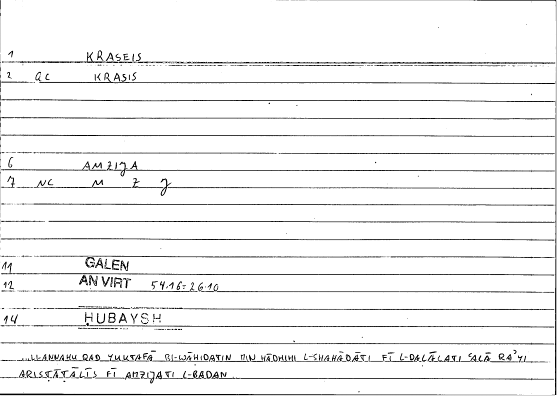 1 KRASEIS
2 QC KRASIS
6 AMZIJA
7 NC M Z J
11 GALEN
12 AN VIRT 54.16=26.10
14 ḤUBAYSH
...LLANNAHU QAD YUKTAFĀ BI-WĀḤIDATIN MIN HĀDHIHI L-SHAHĀDĀTI FĪ L-DALĀLATI ʿALĀ RAʾYI
ARISṬĀṬĀLĪS FĪ AMZIJATI L-BADAN